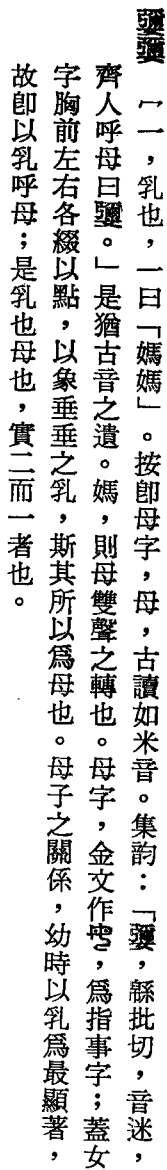 㜷㜷 ㄇㄧ,乳也,一曰「媽媽」。按卽母字,母,古讀如米音。集韵:「㜷,緜批切,音迷,
齊人呼母曰㜷。」是猶古音之遺。媽,則母雙聲之轉也。母字,金文作,爲指事字;蓋女
字胸前左右各綴以點,以象垂垂之乳,斯其所以爲母也。母子之關係,幼時以乳爲最顯著,
故卽以乳呼母;是乳也母也,實二而一者也。